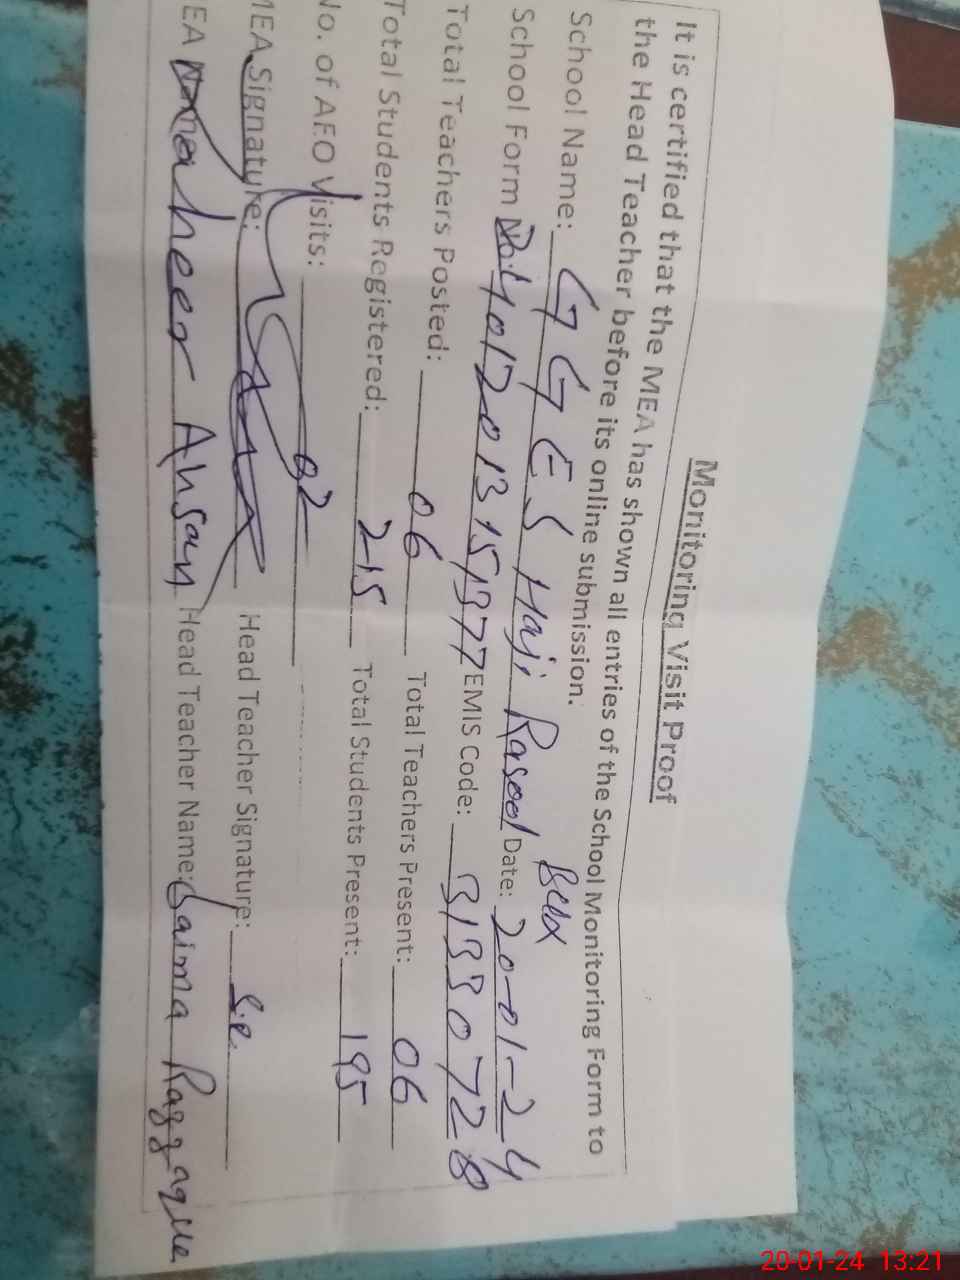 Monitoring Visit Proof
It is certified that the MEA has shown all entries of the School Monitoring Form to
the Head Teacher before its online submission.
School Name: GGES Haji Rasool Bux Date: 20-01-24
School Form No: EMIS Code: 31330728
Total Teachers Posted: 06 Total Teachers Present: 06
Total Students Registered: 215 Total Students Present: 195
No. of AEO Visits: 02
MEA Signature: Head Teacher Signature: S.R.
EA Name: Zaheer Ahsan Head Teacher Name: Saima Razzaque
20-01-24 13:21